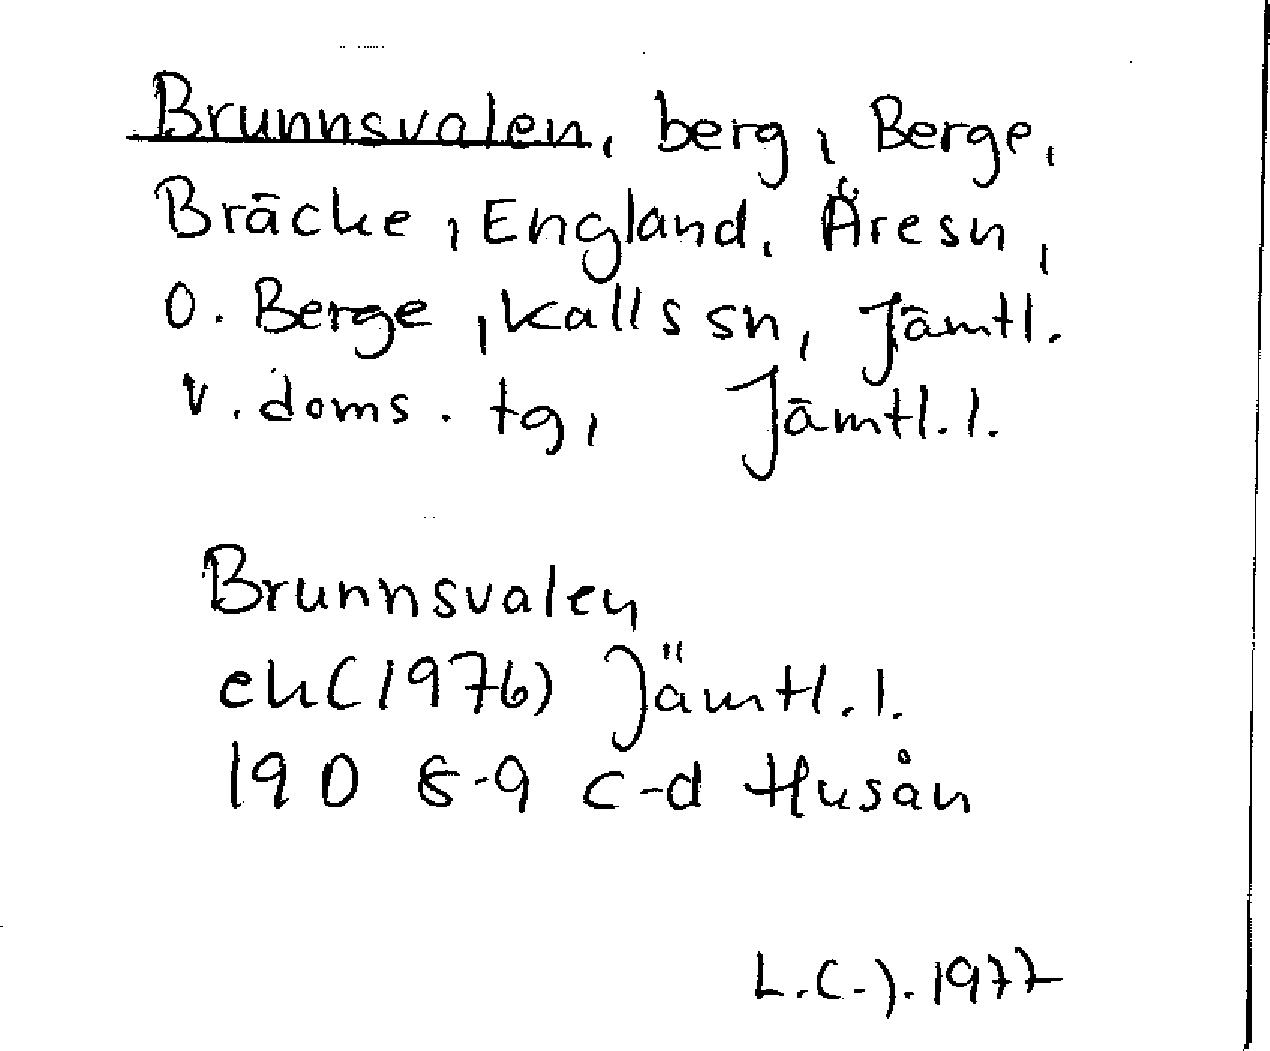 Brunnsvalen, berg, Berge,
Bräcke, England, Åre sn,
o. Berge, Kalls sn, Jämtl.
v. doms. tg, Jämtl. l.
Brunnsvalen
ek (1976) Jämtl. l.
19 D 8-9 c-d Husån
L.C-J. 1977